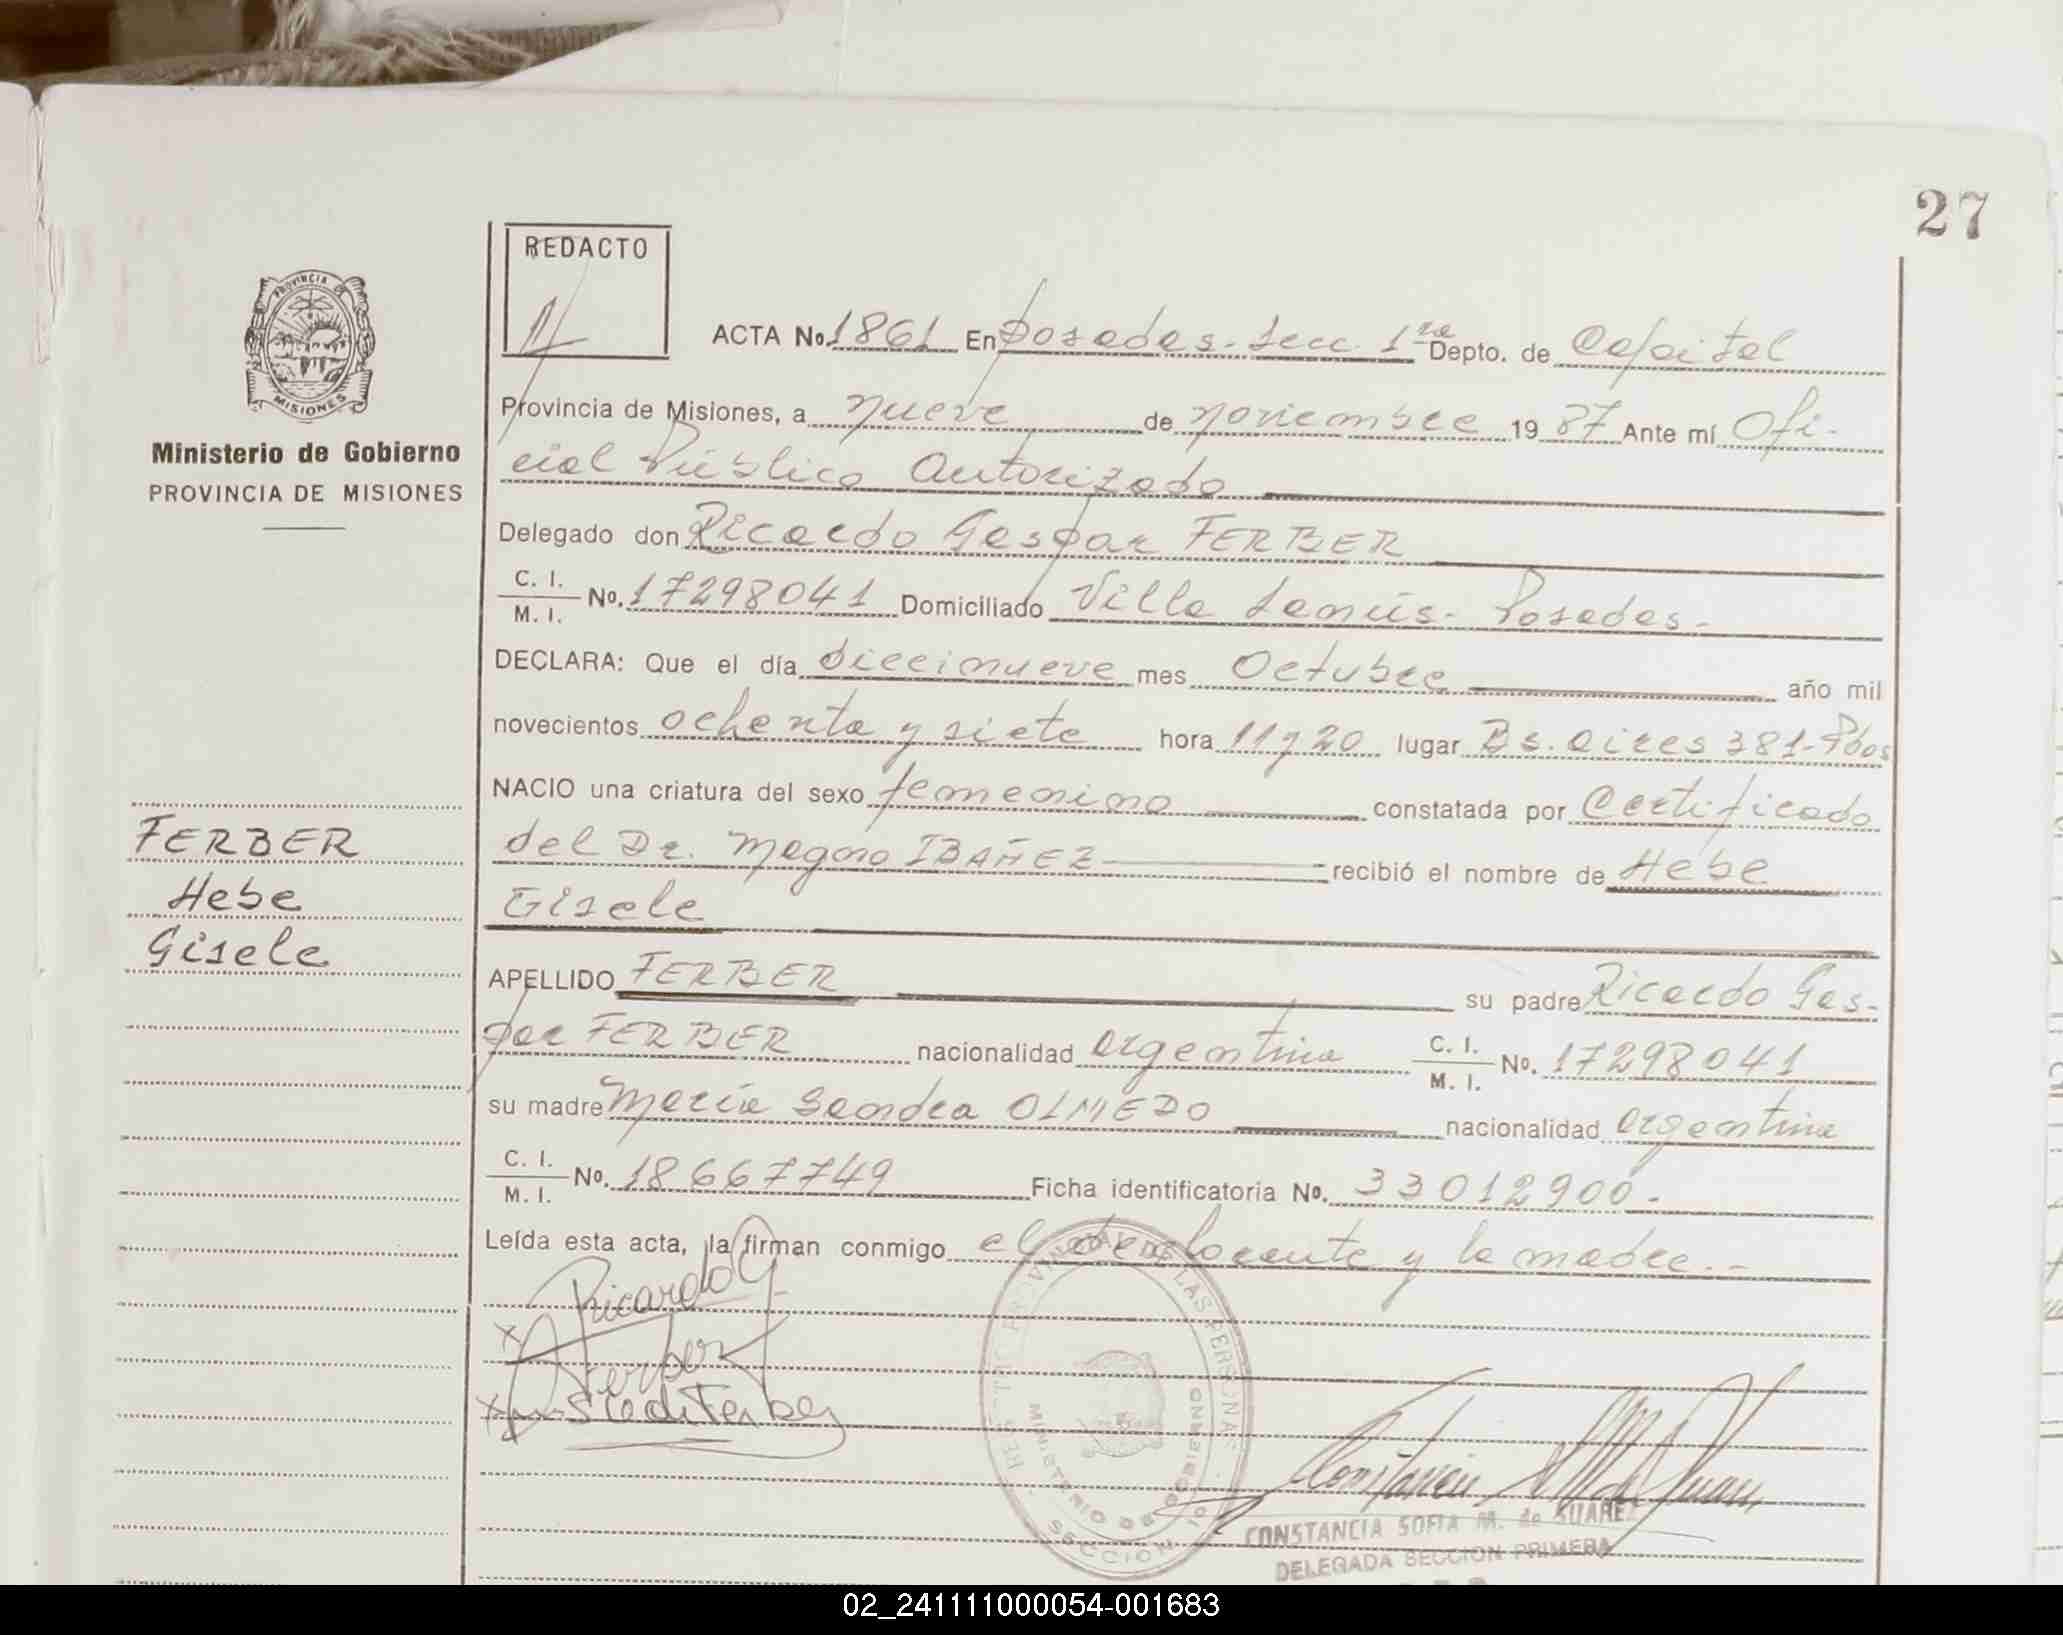 27
REDACTO
PROVINCIA DE
MISIONES
Ministerio de Gobierno
PROVINCIA DE MISIONES
ACTA No. 1861 En Posadas - Secc. 1ra Depto. de Capital
Provincia de Misiones, a nueve de noviembre 19 87 Ante mí Ofi-
cial Público Autorizado
Delegado don Ricardo Gaspar FERBER
C. I. / M. I. No. 17298041 Domiciliado Villa Lanús - Posadas -
DECLARA: Que el día diecinueve mes Octubre año mil
novecientos ochenta y siete hora 11 y 20 lugar Bs. Aires 381 - Pdas
NACIO una criatura del sexo femenino constatada por Certificado
del Dr. Magno IBAÑEZ recibió el nombre de Hebe
Gisele
APELLIDO FERBER su padre Ricardo Gas-
par FERBER nacionalidad argentina C. I. / M. I. No. 17298041
su madre María Sandra OLMEDO nacionalidad argentina
C. I. / M. I. No. 18667749 Ficha identificatoria No. 33012900.
Leída esta acta, la firman conmigo el declarante y la madre. -
FERBER
Hebe
Gisele
x Ricardo G. Ferber
x
REGISTRO PROVINCIAL DE LAS PERSONAS
MINISTERIO DE GOBIERNO
SECCION 1a
CONSTANCIA SOFIA M. de SUAREZ
DELEGADA SECCION PRIMERA
02_241111000054-001683